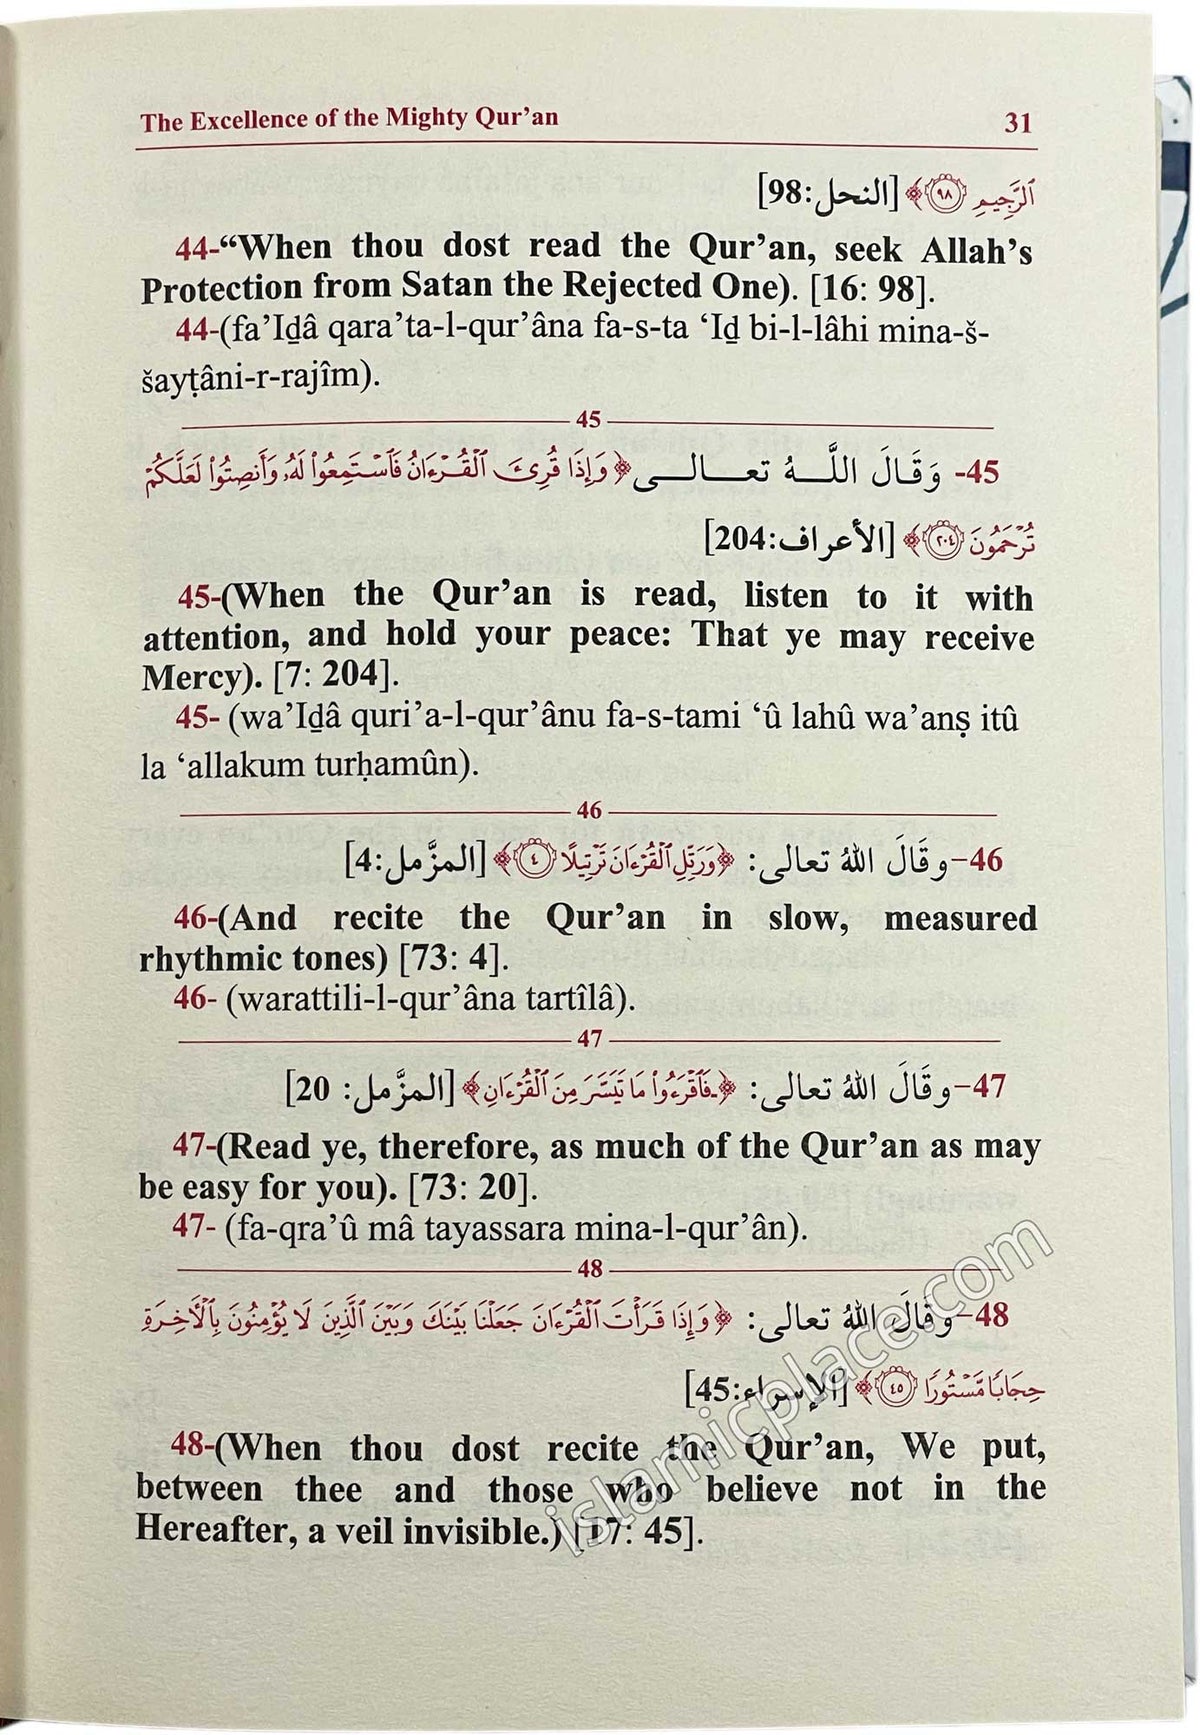 The Excellence of the Mighty Qur’an 31
ٱلرَّجِيمِ ٩٨﴾ [النحل:98]
44-“When thou dost read the Qur’an, seek Allah’s
Protection from Satan the Rejected One). [16: 98].
44-(fa’Iḏâ qara’ta-l-qur’âna fa-s-ta ‘Iḏ bi-l-lâhi mina-š-
šayṭâni-r-rajîm).
45
45- وَقَالَ اللَّـهُ تعـالـى ﴿وَإِذَا قُرِئَ ٱلْقُرْءَانُ فَٱسْتَمِعُوا۟ لَهُۥ وَأَنصِتُوا۟ لَعَلَّكُمْ
تُرْحَمُونَ ٢٠٤﴾ [الأعراف:204]
45-(When the Qur’an is read, listen to it with
attention, and hold your peace: That ye may receive
Mercy). [7: 204].
45- (wa’Iḏâ quri’a-l-qur’ânu fa-s-tami ‘û lahû wa’anṣ itû
la ‘allakum turḥamûn).
46
46–وقَالَ اللهُ تعالى: ﴿وَرَتِّلِ ٱلْقُرْءَانَ تَرْتِيلًا ٤﴾ [المزَّمل:4]
46-(And recite the Qur’an in slow, measured
rhythmic tones) [73: 4].
46- (warattili-l-qur’âna tartîlâ).
47
47–وقَالَ اللهُ تعالى: ﴿فَٱقْرَءُوا۟ مَا تَيَسَّرَ مِنَ ٱلْقُرْءَانِ﴾ [المزَّمل: 20]
47-(Read ye, therefore, as much of the Qur’an as may
be easy for you). [73: 20].
47- (fa-qra’û mâ tayassara mina-l-qur’ân).
48
48–وقَالَ اللهُ تعالى: ﴿وَإِذَا قَرَأْتَ ٱلْقُرْءَانَ جَعَلْنَا بَيْنَكَ وَبَيْنَ ٱلَّذِينَ لَا يُؤْمِنُونَ بِٱلْأَخِرَةِ
حِجَابًا مَّسْتُورًا ٤٥﴾ [الإسراء:45]
48-(When thou dost recite the Qur’an, We put,
between thee and those who believe not in the
Hereafter, a veil invisible.) [17: 45].
islamicplace.com